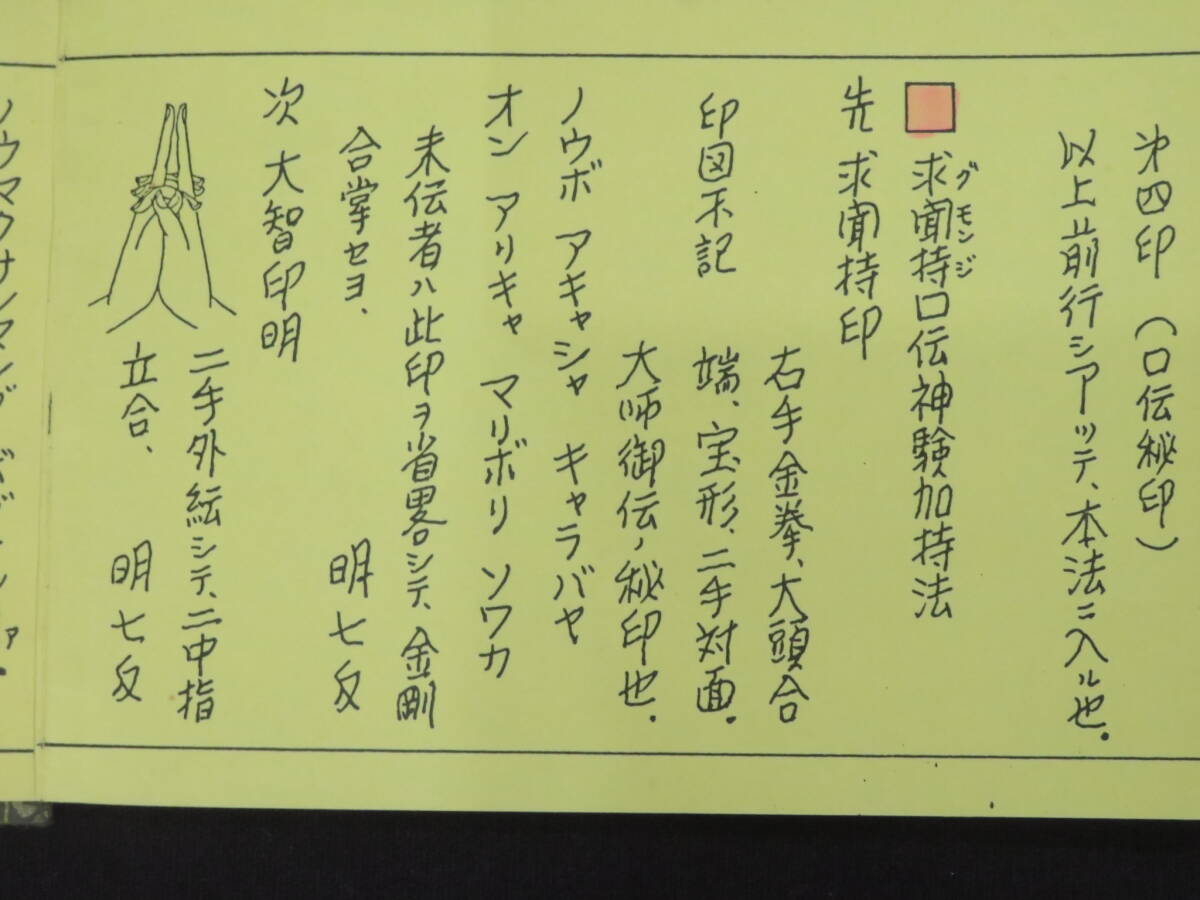 才四印（口伝秘印）
以上前行シアッテ、本法ニ入ル也.
求聞持口伝神験加持法
グモンジ
先 求聞持印
右手金拳、大頭合
印図不記 端、宝形、二手対面.
大師御伝ノ秘印也.
ノウボ アキャシャ キャラバヤ
オン アリキャ マリボリ ソワカ
未伝者ハ此印ヲ省畧シテ、金剛
合掌セヨ、 明七反
次 大智印明
二手外縛シテ、二中指
立合、 明七反